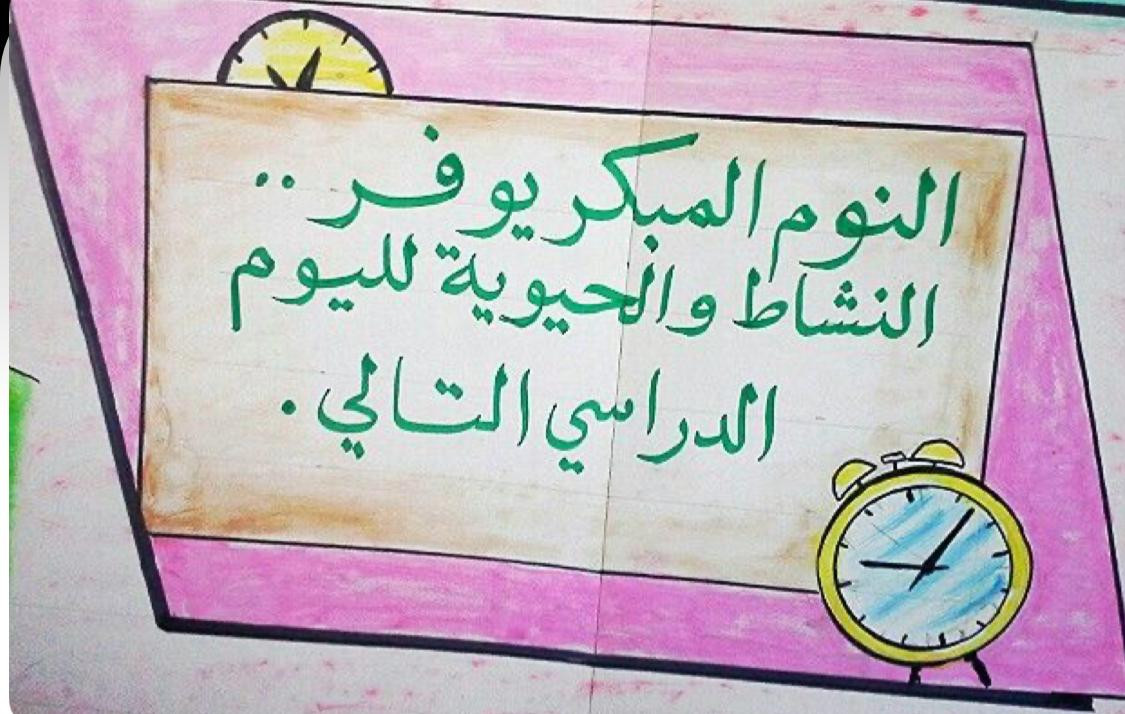 النوم المبكر يوفر ..
النشاط والحيوية لليوم
الدراسي التالي .